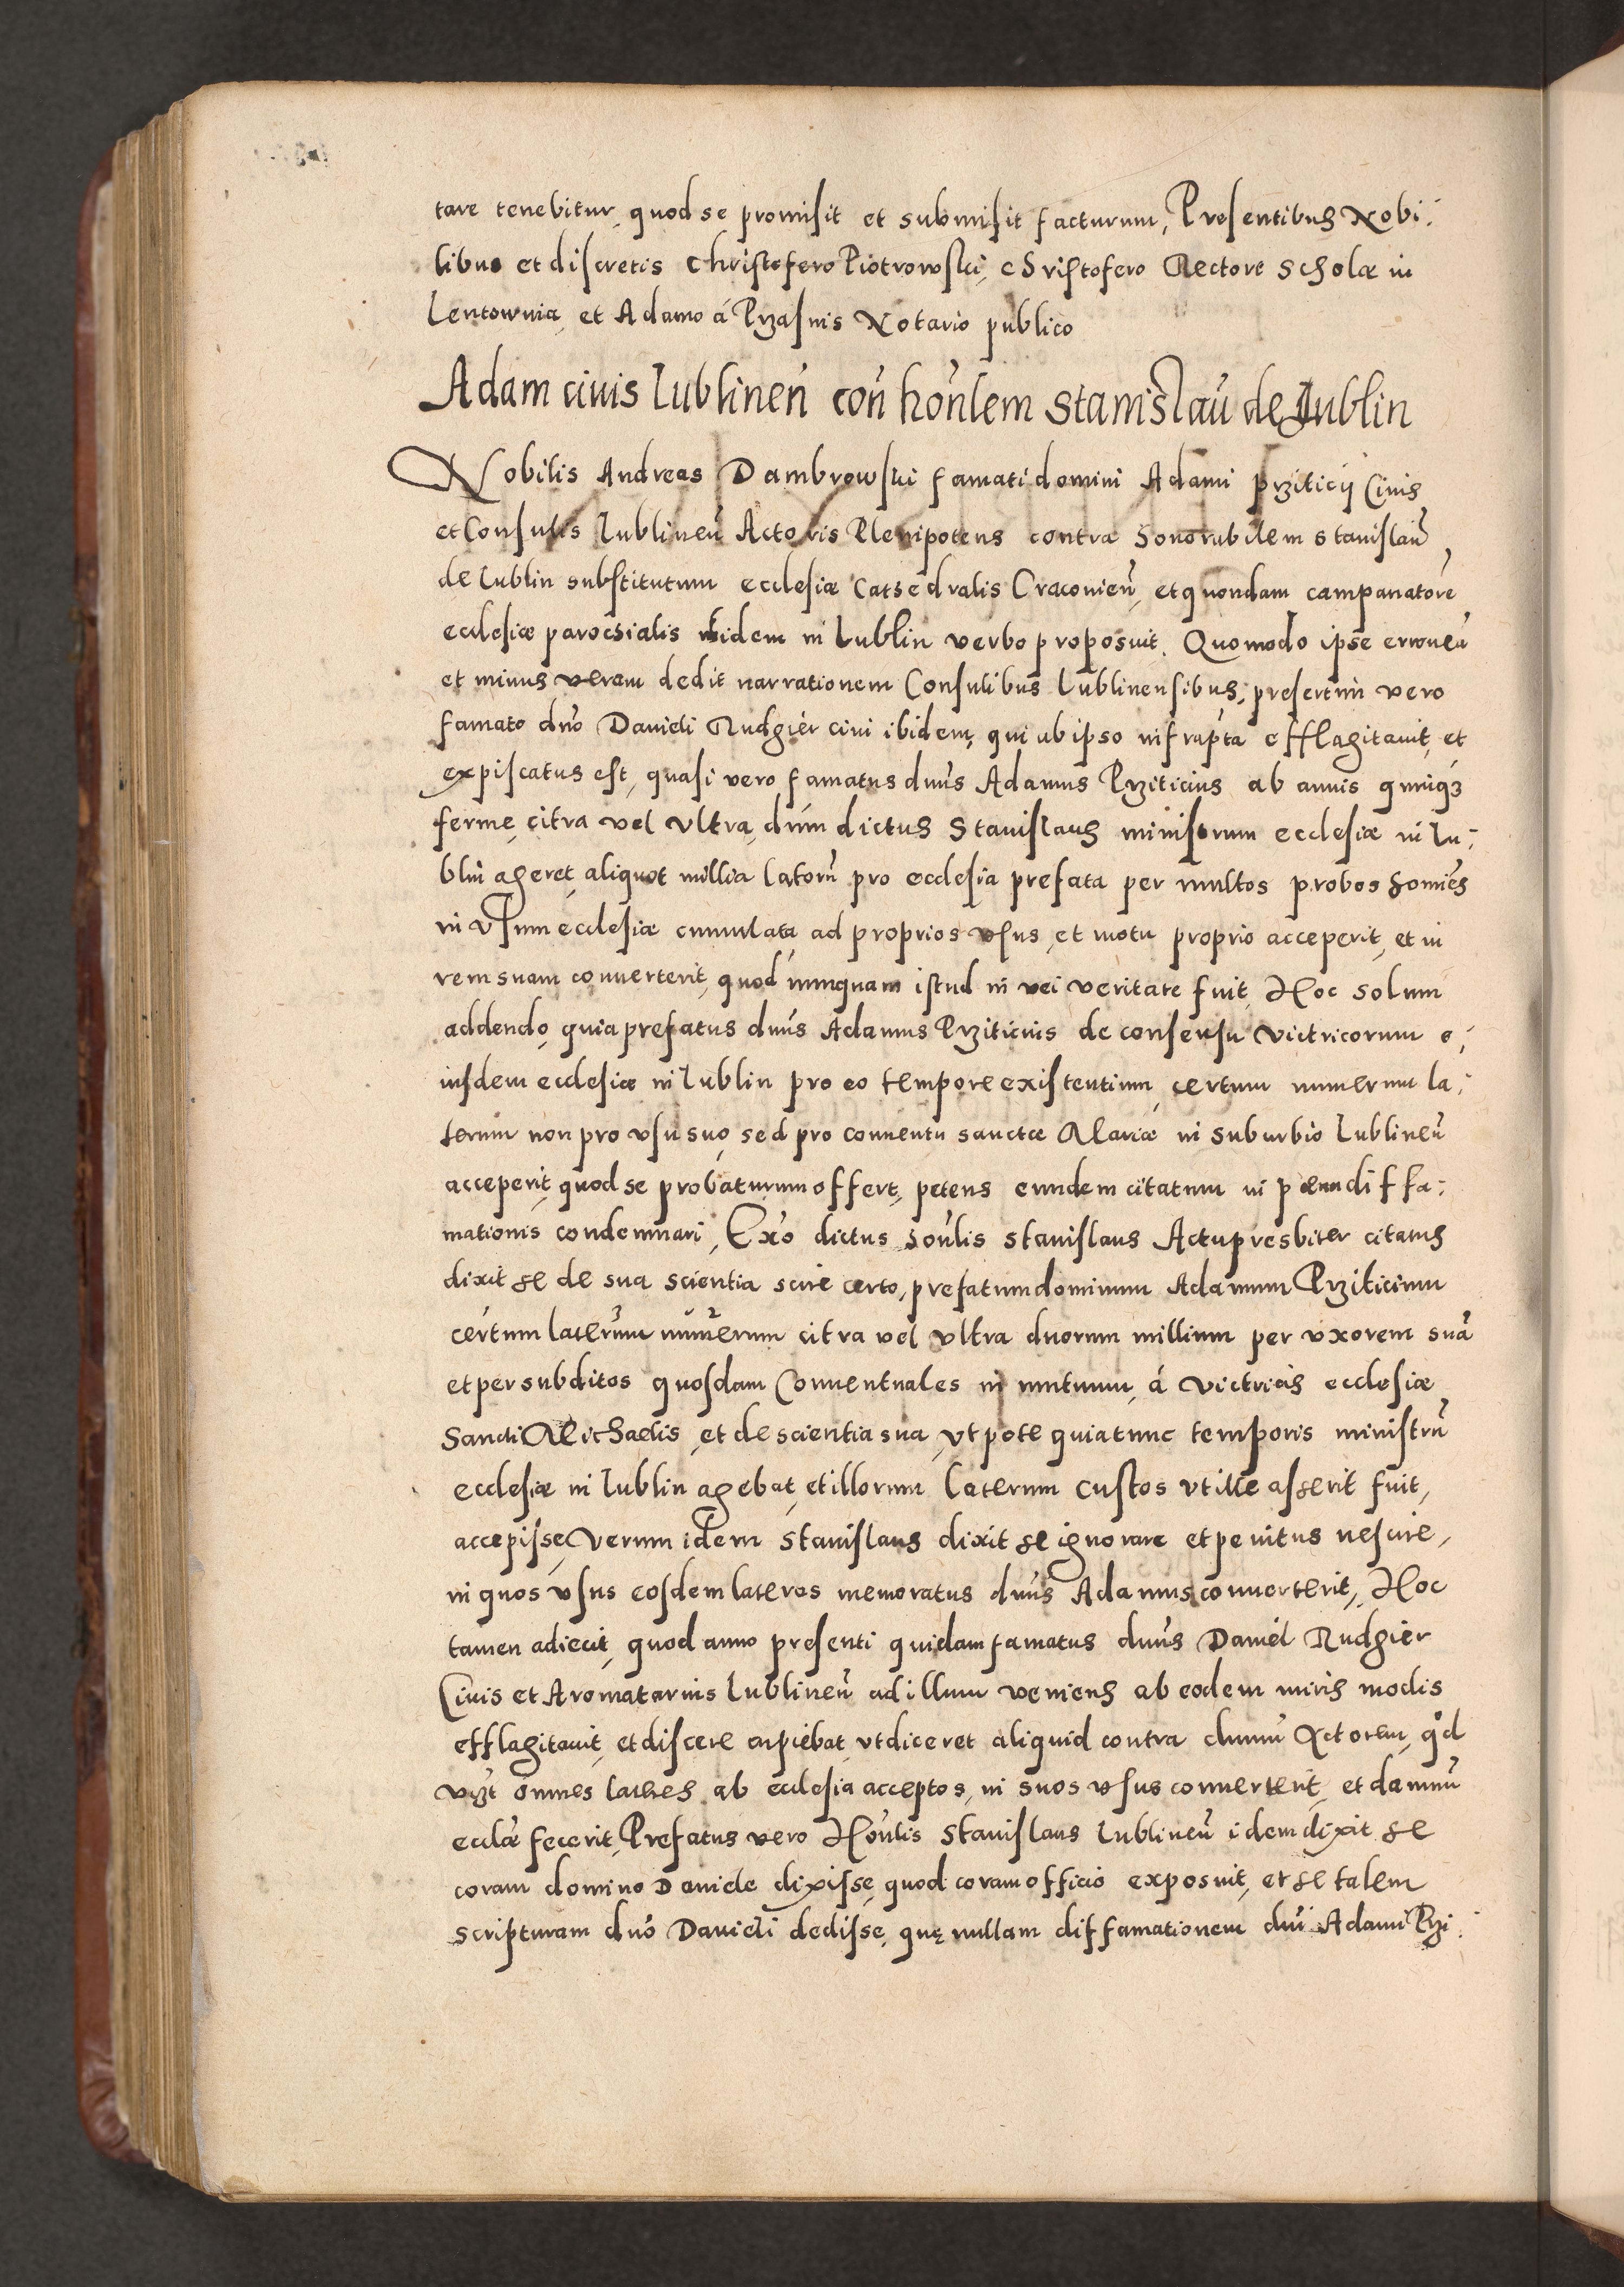 tare tenebitur, quod se promisit et submisit facturum, Presentibus Nobi:
libus et discretis Christofero Piotrowski, Christofero Rectore scholæ in
Lentownia, et Adamo á Przasnis Notario publico
Adam ciuis Lublineñ coñ hoñlem Stanislaũ de Lublin
Nobilis Andreas Dambrowski famati domini Adami Prziticij Ciuis
et Consulis Lublineñ Actoris Plenipotens contra honorabilem stanislaũ
de Lublin substitutum ecclesiæ Cathedralis Cracouieñ, et quondam campanatorẽ
ecclesiæ parochialis ibidem in Lublin verbo proposuit. Quomodo ipse erroneã
et minus veram dedit narrationem Consulibus Lublinensibus, presertim vero
famato dño Danieli Rudgier ciui ibidem, qui ab ipso infrapta efflagitauit, et
expiscatus est, quasi vero famatus dnus Adamus Prziticius ab annis quinqȝ
ferme, citra vel vltra, dum dictus Stanislaus ministrum ecclesiæ in Lu:
blin ageret, aliquot millia laterũ pro ecclesia prefata per multos probos homiẽs
in vsum ecclesiæ cumulata, ad proprios vsus, et motu proprio acceperit, et in
rem suam conuerterit, quod nunquam istud in rei veritate fuit, Hoc solum
addendo, quia prefatus dnus Adamus Prziticius de consensu victricorum e:
iusdem ecclesiæ in Lublin pro eo tempore existentium, certum numerum la:
terum non pro vsu suo, sed pro conuentu sanctæ Mariæ in suburbio Lublineñ
acceperit, quod se probaturum offert, petens eundem citatum in pœnam diffa:
mationis condemnari, Exo dictus hoñlis stanislaus Actu presbiter citatus
dixit se de sua scientia scire certo, prefatum dominum Adamum Przitícium
certum laterum numerum citra vel vltra duorum millium per vxorem suã
et per subditos quosdam Conuentuales in mutuum, á victricis ecclesiæ
Sancti Michaelis, et de scientia sua, vtpote quia tunc temporis ministrũ
ecclesiæ in Lublin agebat, et illorum laterum custos vt ille asserit fuit,
accepisse, Verum idem stanislaus dixit se ignorare et penitus nescire,
in quos vsus eosdem lateres memoratus dnus Adamus conuerterit, Hoc
tamen adiecit, quod anno presenti quidam famatus dnus Daniel Rudgier
Ciuis et Aromatarius Lublineñ ad illum veniens ab eodem miris modis
efflagitauit, et discere cupiebat, vt diceret aliquid contra dnum Actorem, qd
vizt omnes lateres ab ecclesia acceptos, in suos vsus conuerterit, et damnũ
ecclæ fecerit, Prefatus vero Hoñlis Stanislaus Lublineñ idem dixit se
coram domino Daniele dixisse, quod coram officio exposuit, et se talem
scripturam dño Danieli dedisse, quę nullam diffamationem dni Adami Przi: